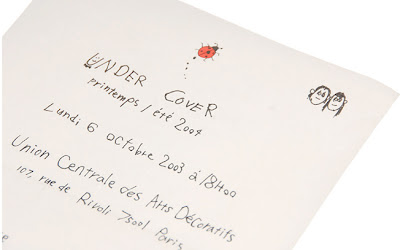 UNDER COVER
printemps / été 2004
Lundi 6 octobre 2003 à 18h00
Union Centrale des Arts Décoratifs
107, rue de Rivoli 75001 Paris